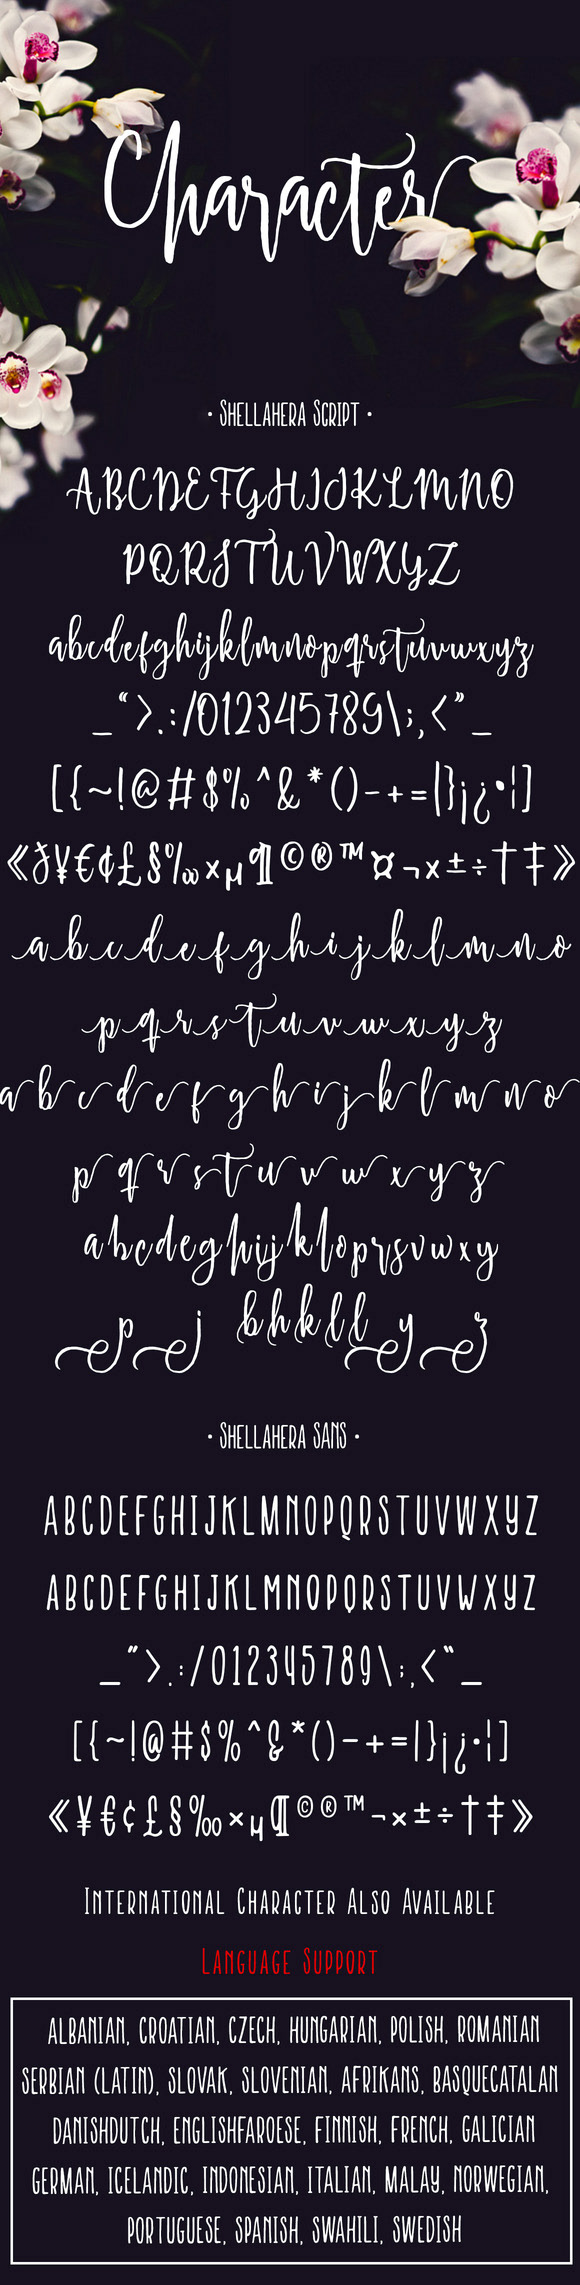 Character
• Shellahera Script •
ABCDEFGHIJKLMNO
PQRSTUVWXYZ
abcdefghijklmnopqrstuvwxyz
_“>.:/012345789\;,<”_
[{~!@#$%^&*()-+=|}¡¿•¦]
《¥€¢£§‰×µ¶©®™¤¬×±÷†‡》
abcdefghijklmno
pqrstuvwxyz
abcdefghijklmno
pqrstuvwxyz
abcdeghijkloprsvwxy
pj bhkll yz
• Shellahera SANS •
ABCDEFGHIJKLMNOPQRSTUVWXYZ
ABCDEFGHIJKLMNOPQRSTUVWXYZ
_”>.:/012345789\;,<“_
[{~!@#$%^&*()-+=|}¡¿•¦]
《¥€¢£§‰×µ¶©®™¬×±÷†‡》
International Character Also Available
Language Support
ALBANIAN, CROATIAN, CZECH, HUNGARIAN, POLISH, ROMANIAN
SERBIAN (LATIN), SLOVAK, SLOVENIAN, AFRIKANS, BASQUECATALAN
DANISHDUTCH, ENGLISHFAROESE, FINNISH, FRENCH, GALICIAN
GERMAN, ICELANDIC, INDONESIAN, ITALIAN, MALAY, NORWEGIAN,
PORTUGUESE, SPANISH, SWAHILI, SWEDISH